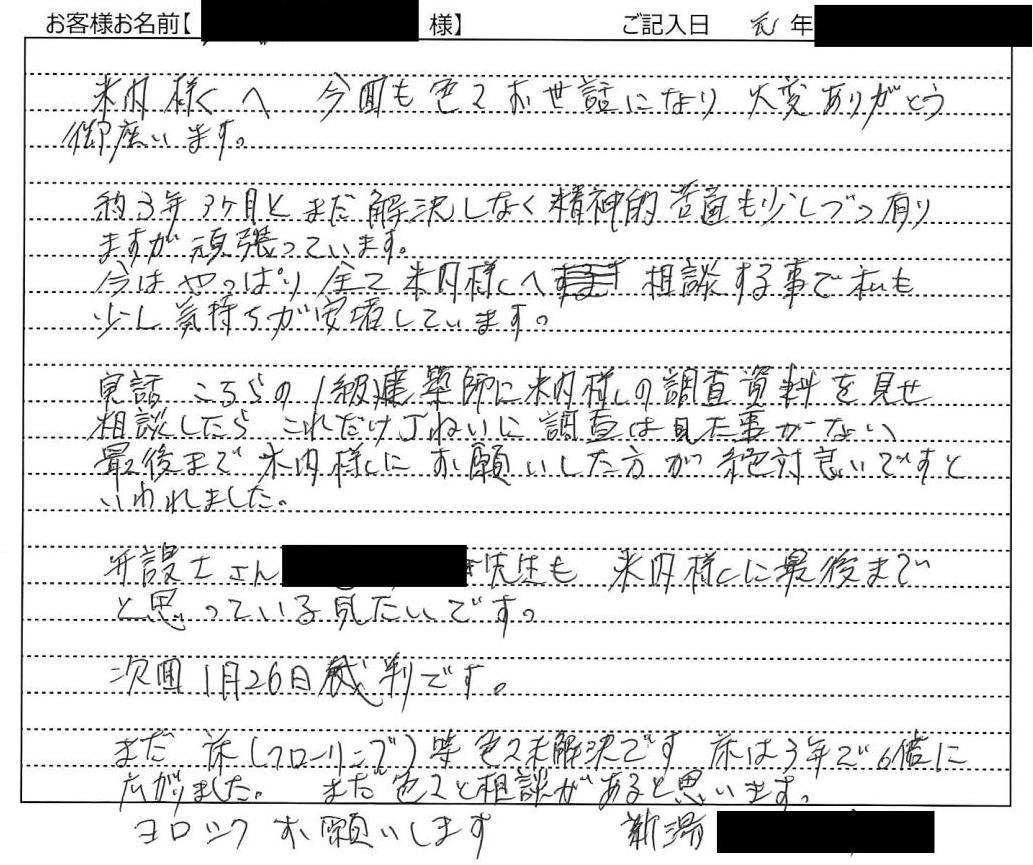 お客様お名前【 様】 ご記入日 元年
米内様へ 今回も色々お世話になり 大変ありがとう
御座います。
約3年3ヶ月とまだ解決しなく精神的苦痛も少しづつ有り
ますが頑張っています。
今はやっぱり全て米内様へ 相談する事で私も
少し気持ちが安堵しています。
実話 こちらの1級建築師に米内様の調査資料を見せ
相談したら これだけ丁ねいに調査は見た事がない
最後まで米内様にお願いした方が絶対良いですと
いわれました。
弁護士さん 先生も 米内様に最後まで
と思っている見たいです。
次回1月26日裁判です。
まだ 床(フローリング)等色々未解決です 床は3年で6倍に
広がりました。 まだ色々と相談があると思います。
ヨロシク お願いします 新潟